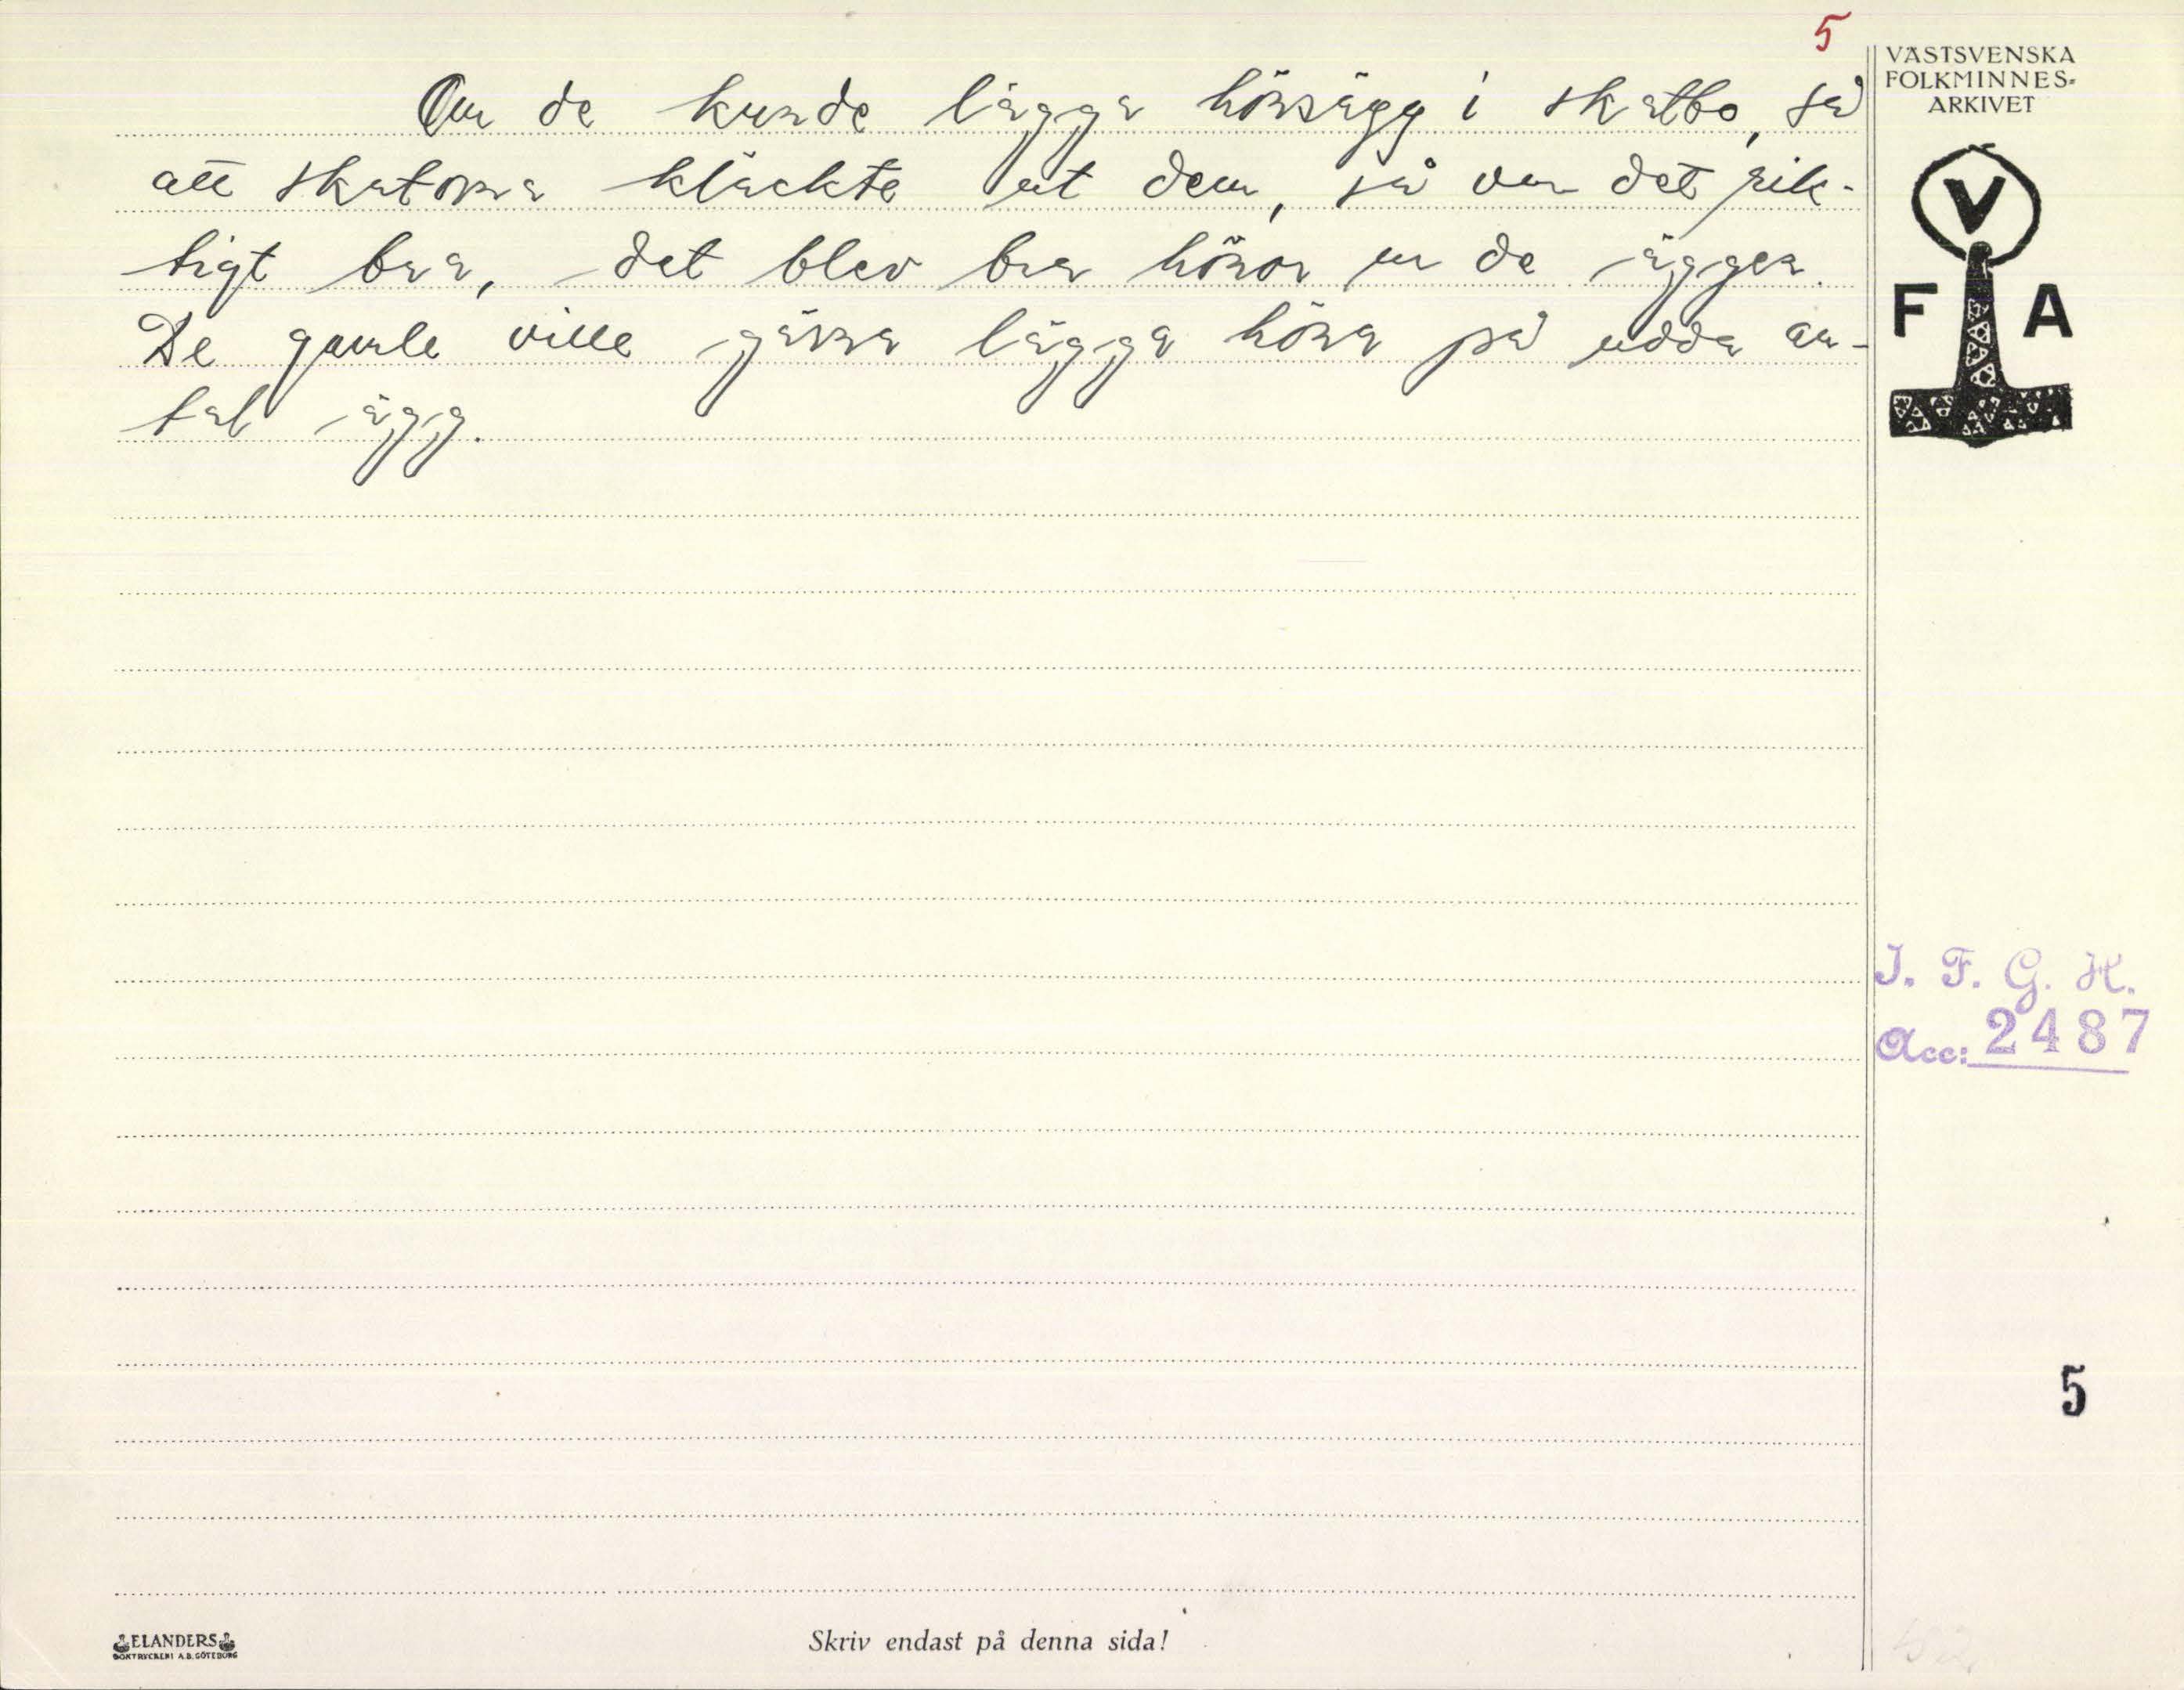 5
VÄSTSVENSKA
FOLKMINNES-
ARKIVET
Om de kunde lägga hönsägg i skatbo, så
att skatorna kläckte ut dem, så var det rik-
tigt bra, det blev bra hönor ur de äggen.
De gamle ville gärna lägga höna på udda an-
tal ägg.
V
F A
I. F. G. H.
Acc: 2487
5
ELANDERS
BOKTRYCKERI A.B. GÖTEBORG
Skriv endast på denna sida!